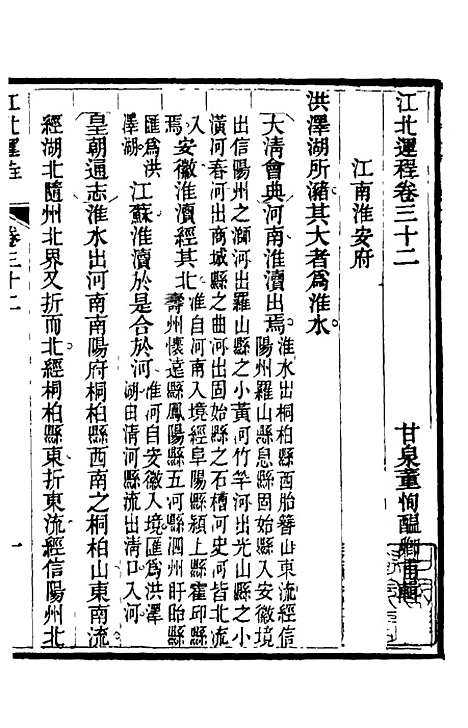 江北運程卷三十二
甘泉董恂醞卿甫輯
江南淮安府
洪澤湖所瀦其大者為淮水
大清會典河南淮瀆出焉淮水出桐柏縣西胎簪山東流經信
陽州羅山縣息縣固始縣入安徽境
出信陽州之溮河出羅山縣之小黃河竹竿河出光山縣之小
潢河春河出商城縣之曲河出固始縣之石槽河史河皆北流
入焉安徽淮瀆經其北淮自河南入境經阜陽縣潁上縣霍邱縣
壽州懷遠縣鳳陽縣五河縣泗州盱眙縣
匯為洪澤湖江蘇淮瀆於是合於河淮河自安徽入境匯為洪澤
湖由清河縣流出清口入河
皇朝通志淮水出河南南陽府桐柏縣西南之桐柏山東南流
經湖北隨州北界又折而北經桐柏縣東折東流經信陽州北
江北運程
卷三十二
一